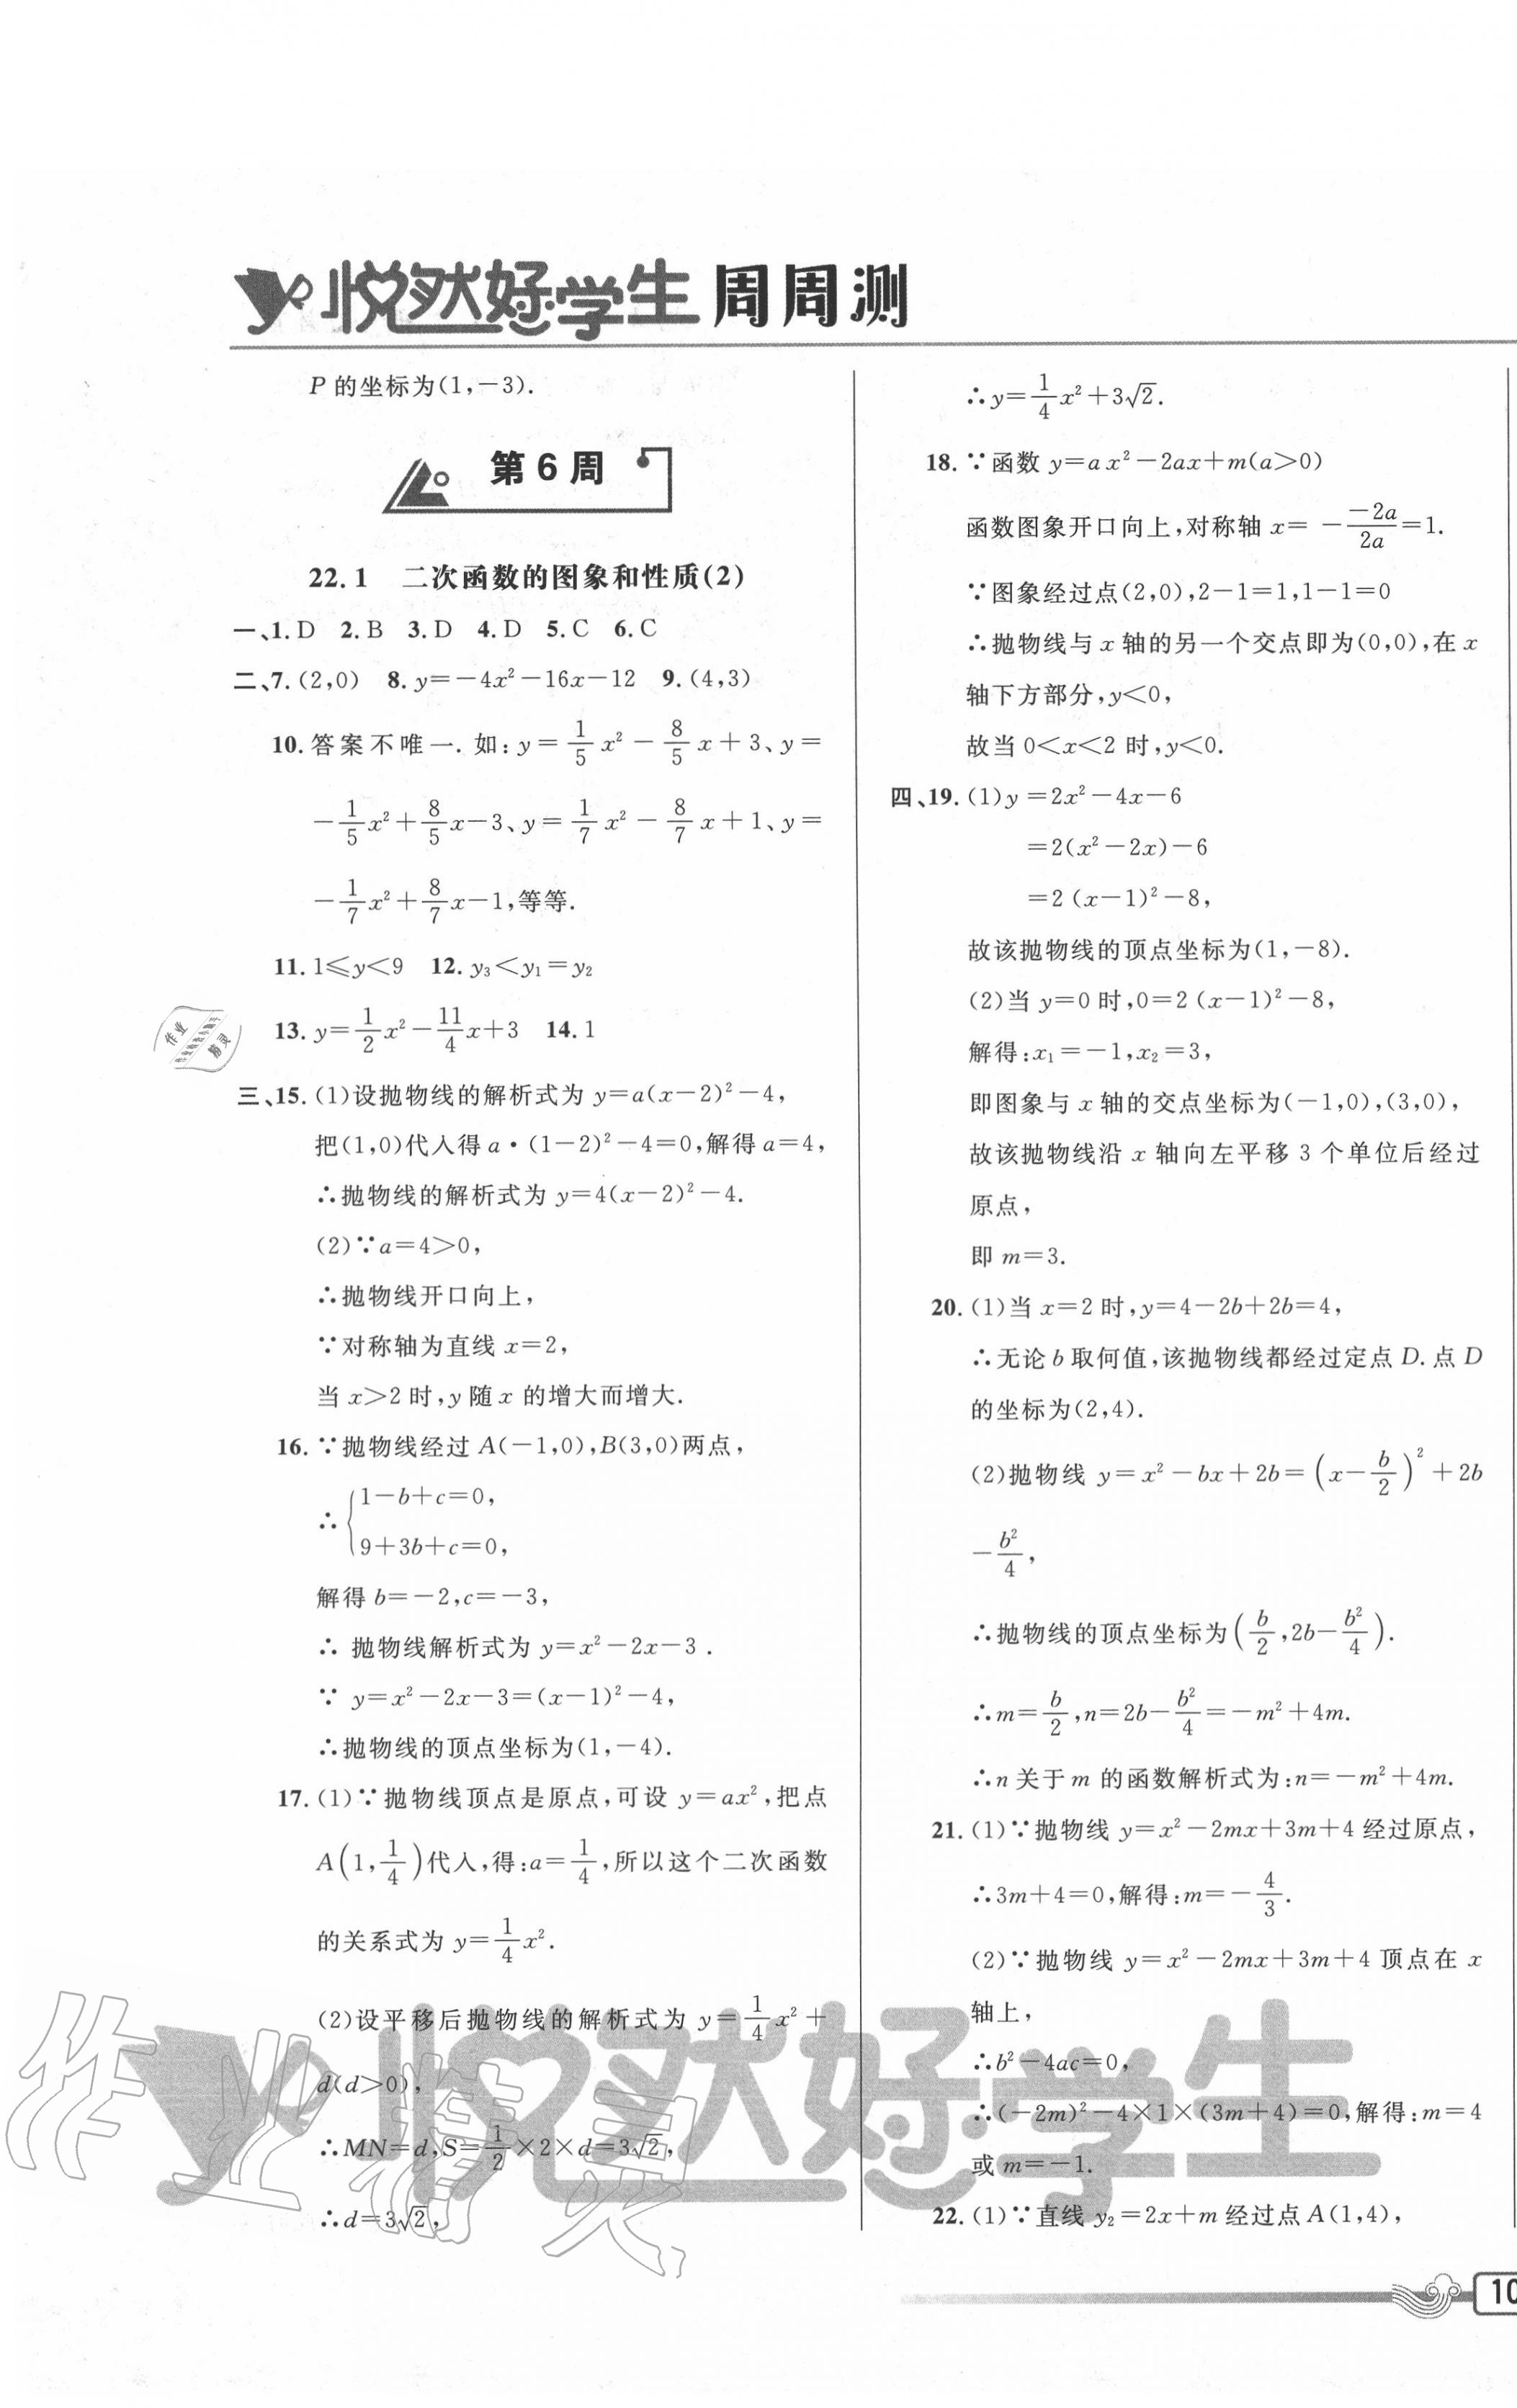 悦然好学生 周周测
P 的坐标为(1,-3).
第 6 周
22.1 二次函数的图象和性质(2)
一、1.D 2.B 3.D 4.D 5.C 6.C
二、7.(2,0) 8.y=-4x²-16x-12 9.(4,3)
10.答案不唯一.如:y=1/5x²-8/5x+3、y=
-1/5x²+8/5x-3、y=1/7x²-8/7x+1、y=
-1/7x²+8/7x-1,等等.
11.1≤y<9 12.y₃<y₁=y₂
13.y=1/2x²-11/4x+3 14.1
三、15.(1)设抛物线的解析式为 y=a(x-2)²-4,
把(1,0)代入得 a·(1-2)²-4=0,解得 a=4,
∴抛物线的解析式为 y=4(x-2)²-4.
(2)∵a=4>0,
∴抛物线开口向上,
∵对称轴为直线 x=2,
当 x>2 时,y 随 x 的增大而增大.
16.∵抛物线经过 A(-1,0),B(3,0)两点,
∴{1-b+c=0,
9+3b+c=0,
解得 b=-2,c=-3,
∴ 抛物线解析式为 y=x²-2x-3.
∵ y=x²-2x-3=(x-1)²-4,
∴抛物线的顶点坐标为(1,-4).
17.(1)∵抛物线顶点是原点,可设 y=ax²,把点
A(1,1/4)代入,得:a=1/4,所以这个二次函数
的关系式为 y=1/4x².
(2)设平移后抛物线的解析式为 y=1/4x²+
d(d>0),
∴MN=d,S=1/2×2×d=3√2,
∴d=3√2,
∴y=1/4x²+3√2.
18.∵函数 y=ax²-2ax+m(a>0)
函数图象开口向上,对称轴 x=-(-2a)/2a=1.
∵图象经过点(2,0),2-1=1,1-1=0
∴抛物线与 x 轴的另一个交点即为(0,0),在 x
轴下方部分,y<0,
故当 0<x<2 时,y<0.
四、19.(1)y=2x²-4x-6
=2(x²-2x)-6
=2(x-1)²-8,
故该抛物线的顶点坐标为(1,-8).
(2)当 y=0 时,0=2(x-1)²-8,
解得:x₁=-1,x₂=3,
即图象与 x 轴的交点坐标为(-1,0),(3,0),
故该抛物线沿 x 轴向左平移 3 个单位后经过
原点,
即 m=3.
20.(1)当 x=2 时,y=4-2b+2b=4,
∴无论 b 取何值,该抛物线都经过定点 D.点 D
的坐标为(2,4).
(2)抛物线 y=x²-bx+2b=(x-b/2)²+2b
-b²/4,
∴抛物线的顶点坐标为(b/2,2b-b²/4).
∴m=b/2,n=2b-b²/4=-m²+4m.
∴n 关于 m 的函数解析式为:n=-m²+4m.
21.(1)∵抛物线 y=x²-2mx+3m+4 经过原点,
∴3m+4=0,解得:m=-4/3.
(2)∵抛物线 y=x²-2mx+3m+4 顶点在 x
轴上,
∴b²-4ac=0,
∴(-2m)²-4×1×(3m+4)=0,解得:m=4
或 m=-1.
22.(1)∵直线 y₂=2x+m 经过点 A(1,4),
作业精灵
悦然好学生
作业精灵
10